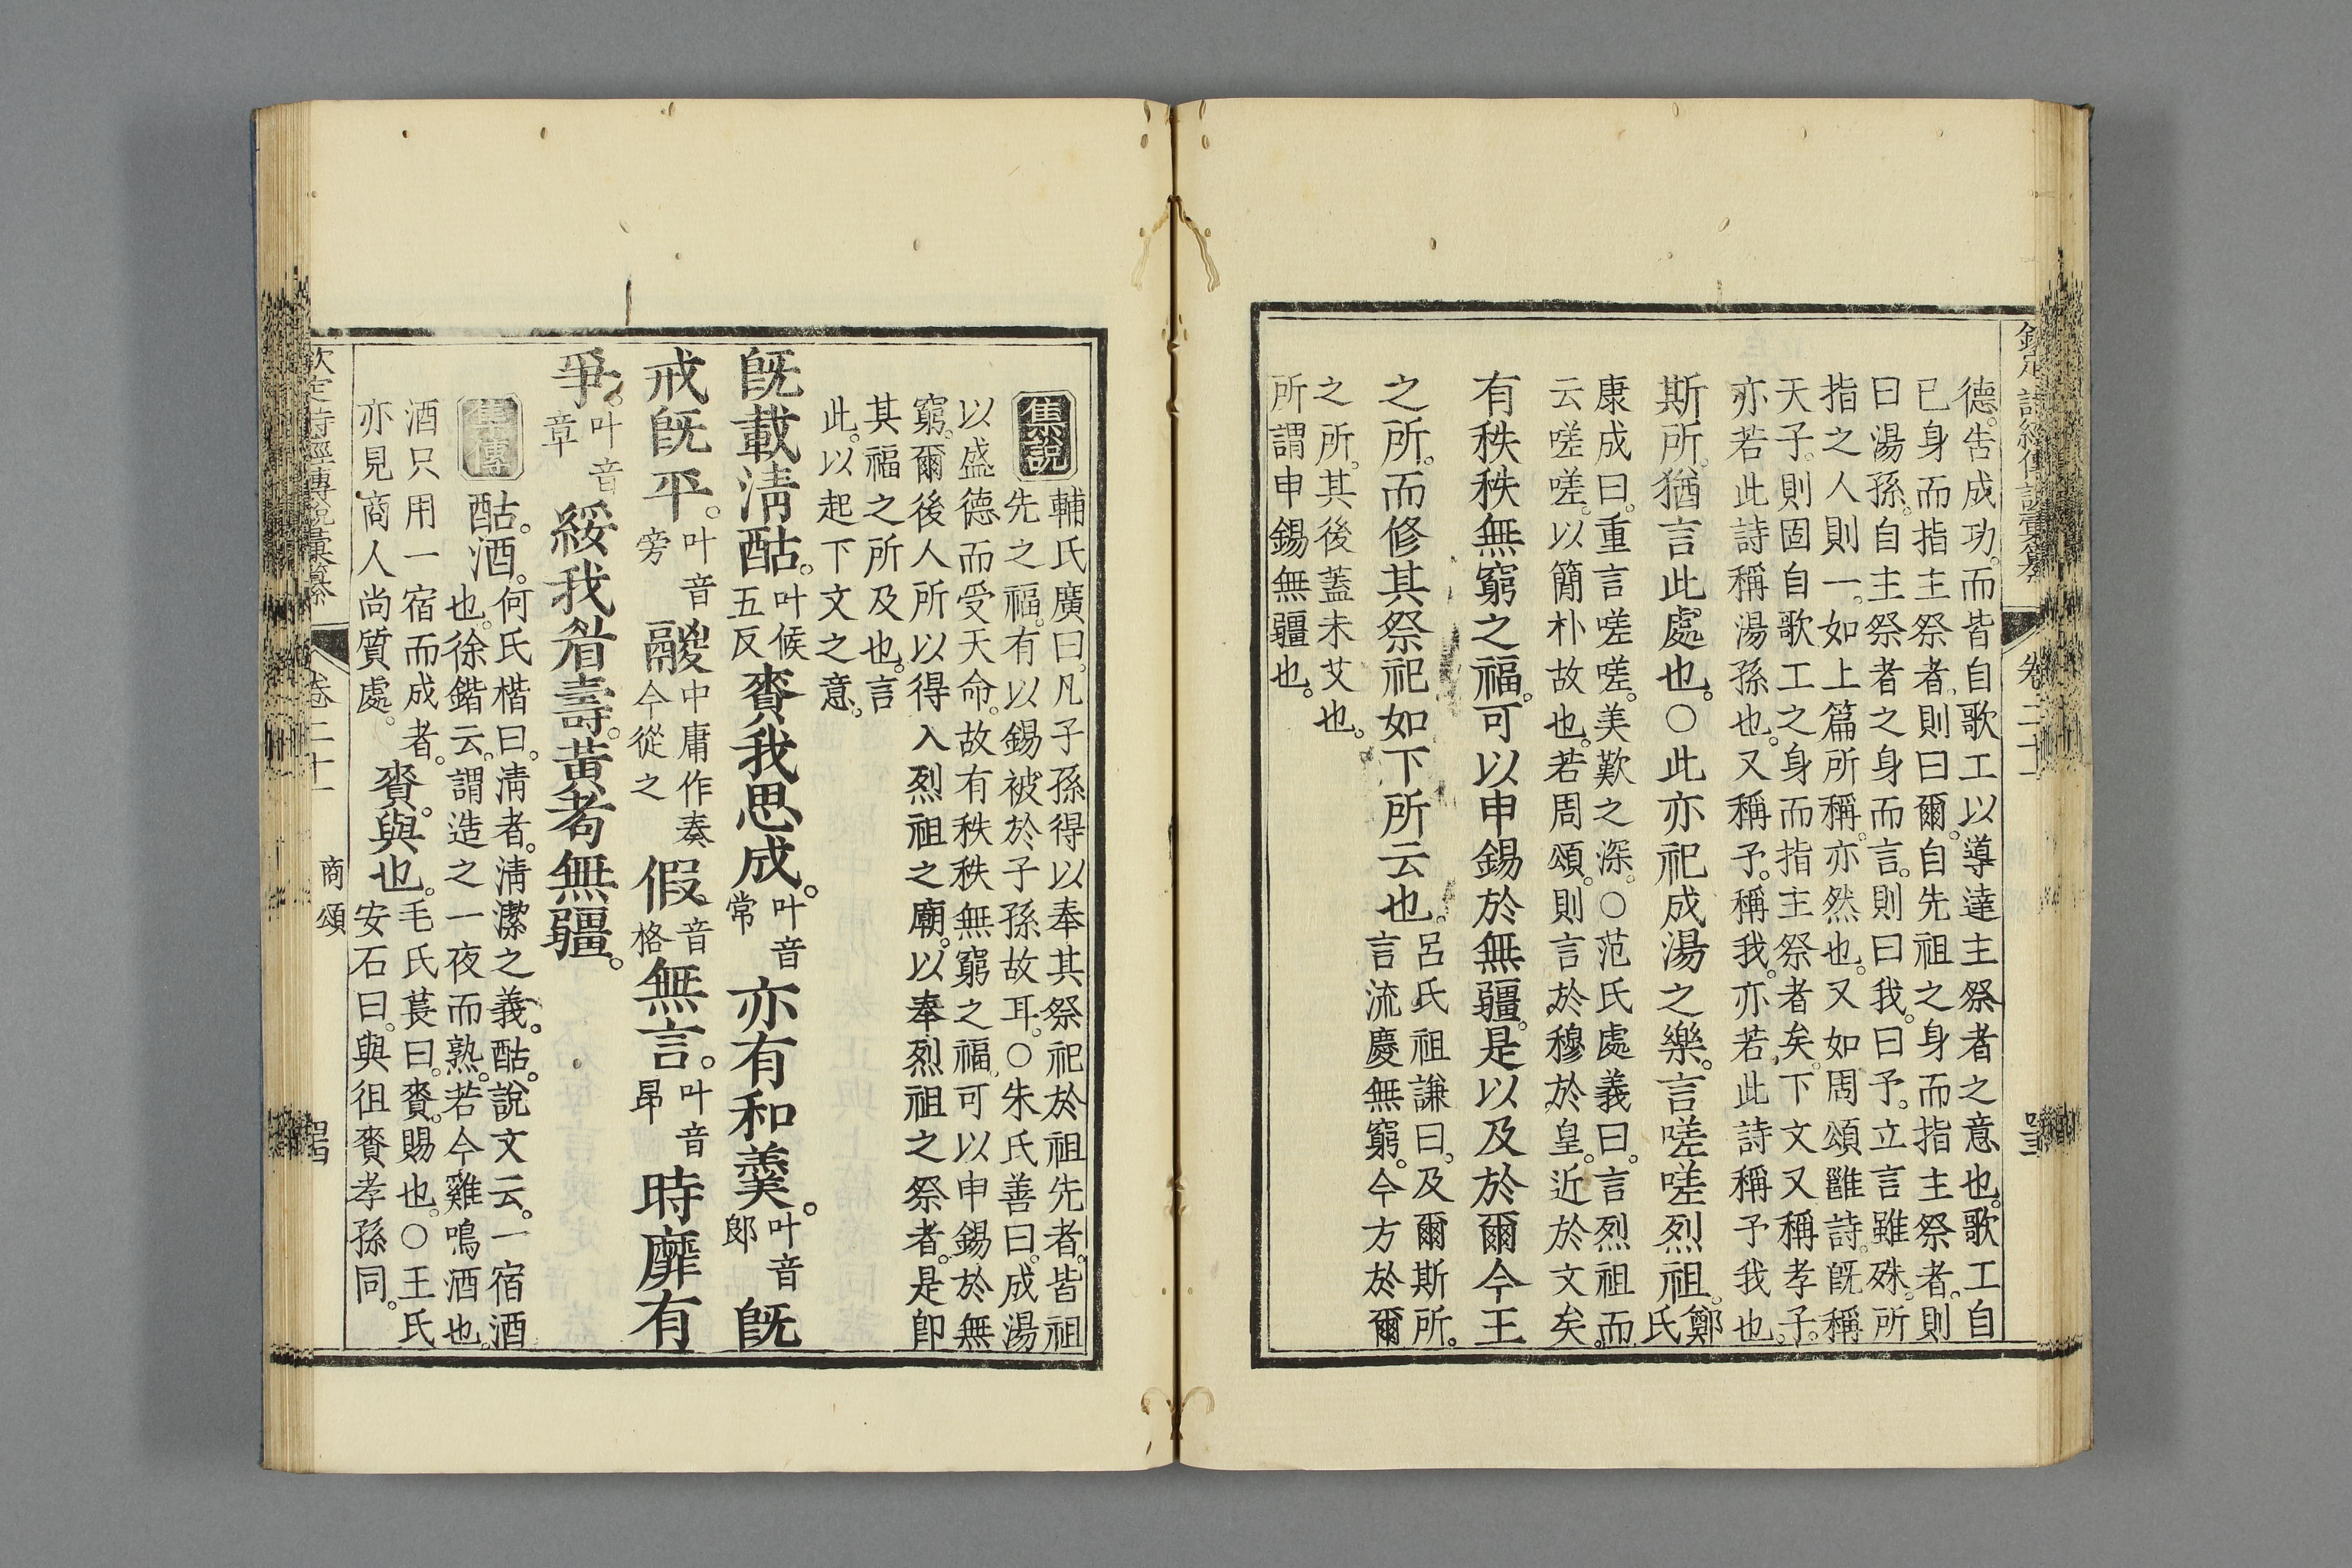 德。告成功。而皆自歌工以導達主祭者之意也。歌工自
已身而指主祭者。則曰爾。自先祖之身而指主祭者。則
曰湯孫。自主祭者之身而言。則曰我。曰予。立言雖殊。所
指之人則一。如上篇所稱。亦然也。又如周頌雝詩。旣稱
天子。則固自歌工之身而指主祭者矣。下文又稱孝子。
亦若此詩稱湯孫也。又稱予。稱我。亦若此詩稱予我也。
斯所。猶言此處也。○此亦祀成湯之樂。言嗟嗟烈祖。鄭氏
康成曰。重言嗟嗟。美歎之深。○范氏處義曰。言烈祖而
云嗟嗟。以簡朴故也。若周頌。則言於穆於皇。近於文矣。
有秩秩無窮之福。可以申錫於無疆。是以及於爾今王
之所。而修其祭祀如下所云也。呂氏祖謙曰。及爾斯所。
言流慶無窮。今方於爾
之所。其後蓋未艾也。
所謂申錫無疆也。
欽定詩經傳說彙纂 卷二十一
集說 輔氏廣曰。凡子孫得以奉其祭祀於祖先者。皆祖
先之福。有以錫被於子孫故耳。○朱氏善曰。成湯
以盛德而受天命。故有秩秩無窮之福。可以申錫於無
窮。爾後人所以得入烈祖之廟。以奉烈祖之祭者。是卽
其福之所及也。言
此。以起下文之意。
旣載淸酤。叶候五反賚我思成。叶音常亦有和羹。叶音郞旣
戒旣平。叶音旁鬷中庸作奏今從之假音格無言。叶音昻時靡有
爭。叶音章綏我眉壽。黃耇無疆。
集傳 酤。酒。何氏楷曰。淸者。淸潔之義。酤。說文云。一宿酒
也。徐鍇云。謂造之一夜而熟。若今雞鳴酒也。
酒只用一宿而成者。賚。與也。毛氏萇曰。賚。賜也。○王氏
亦見商人尚質處。安石曰。與徂賚孝孫同。
欽定詩經傳說彙纂 卷二十一 商頌